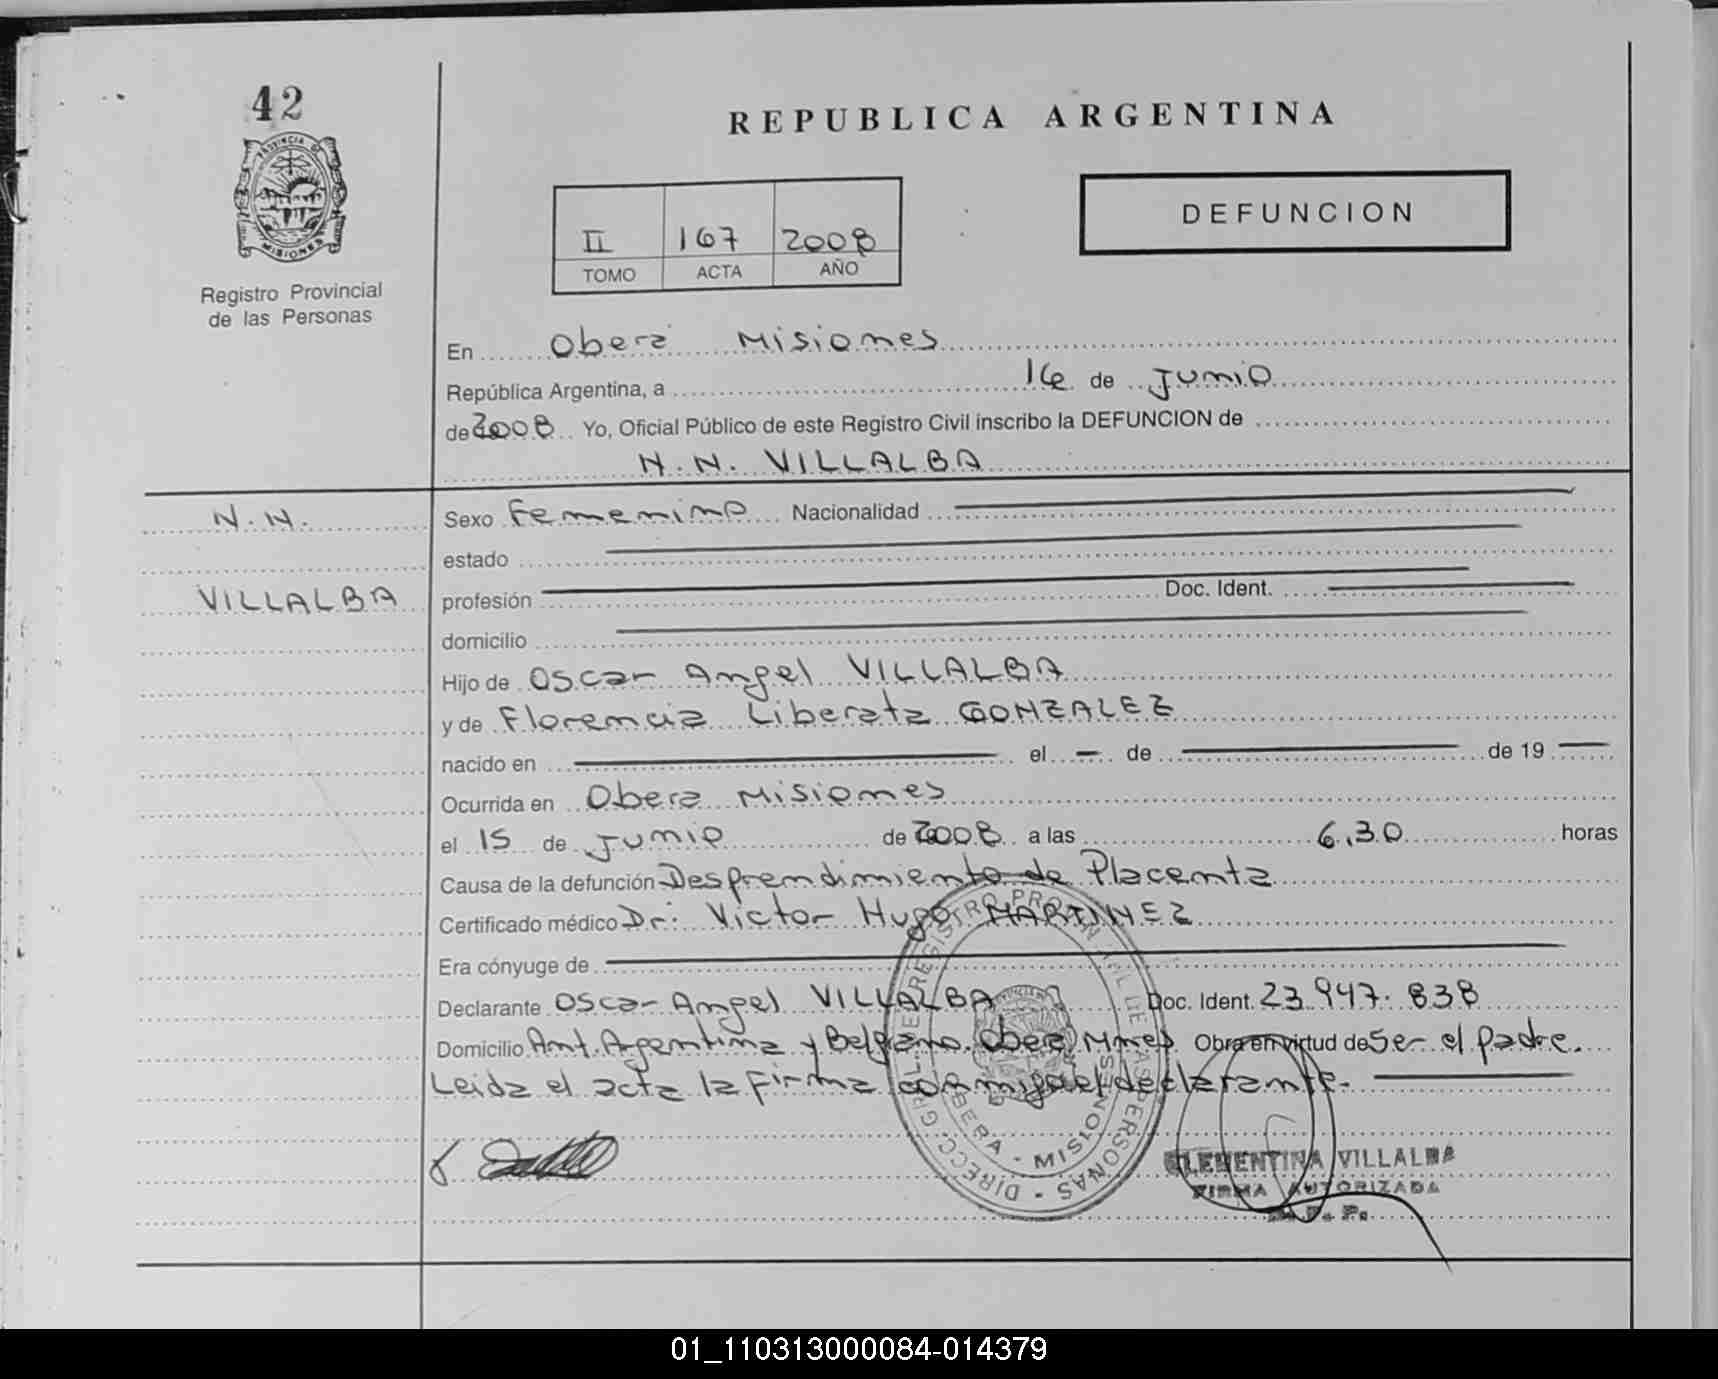 42
PROVINCIA DE
MISIONES
Registro Provincial
de las Personas
REPUBLICA ARGENTINA
II 167 2008
TOMO ACTA AÑO
DEFUNCION
En Obera Misiones
República Argentina, a 16 de Junio
de 2008 Yo, Oficial Público de este Registro Civil inscribo la DEFUNCION de
N.N. VILLALBA
N.N.
VILLALBA
Sexo Femenino Nacionalidad
estado
profesión Doc. Ident.
domicilio
Hijo de Oscar Angel VILLALBA
y de Florencia Liberata GONZALEZ
nacido en el de de 19
Ocurrida en Obera Misiones
el 15 de Junio de 2008 a las 6,30 horas
Causa de la defunción Desprendimiento de Placenta
Certificado médico Dr: Victor Hugo MARTINEZ
Era cónyuge de
Declarante Oscar Angel VILLALBA Doc. Ident. 23.947.838
Domicilio Ant. Argentina y Belgrano. Obera Mnes Obra en virtud de Ser el padre.
Leida el acta la firma conmigo el declarante.
DIRECC. GRAL. DE REGISTRO PROVINCIAL DE LAS PERSONAS
OBERA - MISIONES
CLEMENTINA VILLALBA
FIRMA AUTORIZADA
R. P. P.
01_110313000084-014379